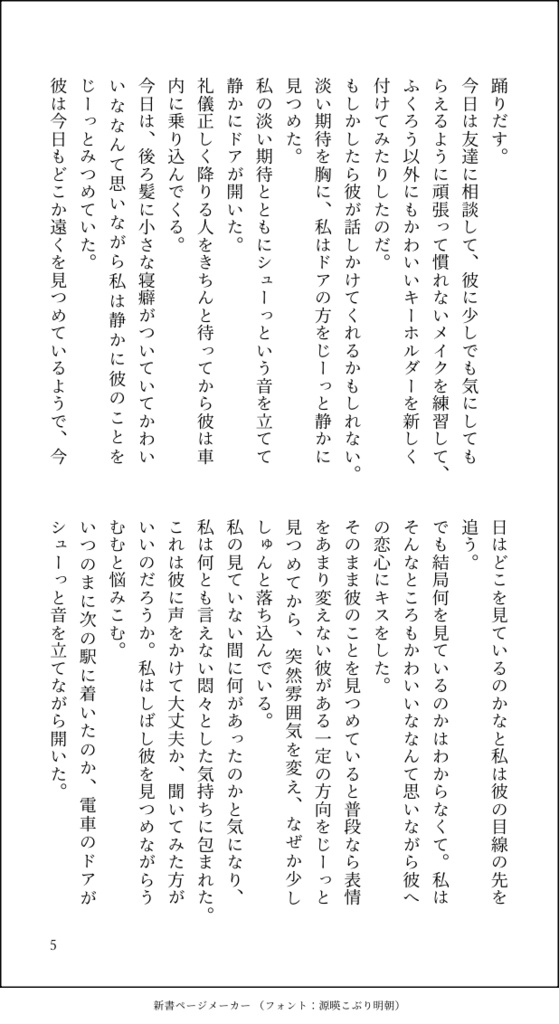 踊りだす。
今日は友達に相談して、彼に少しでも気にしても
らえるように頑張って慣れないメイクを練習して、
ふくろう以外にもかわいいキーホルダーを新しく
付けてみたりしたのだ。
もしかしたら彼が話しかけてくれるかもしれない。
淡い期待を胸に、私はドアの方をじーっと静かに
見つめた。
私の淡い期待とともにシューっという音を立てて
静かにドアが開いた。
礼儀正しく降りる人をきちんと待ってから彼は車
内に乗り込んでくる。
今日は、後ろ髪に小さな寝癖がついていてかわい
いななんて思いながら私は静かに彼のことを
じーっとみつめていた。
彼は今日もどこか遠くを見つめているようで、今
日はどこを見ているのかなと私は彼の目線の先を
追う。
でも結局何を見ているのかはわからなくて。私は
そんなところもかわいいななんて思いながら彼へ
の恋心にキスをした。
そのまま彼のことを見つめていると普段なら表情
をあまり変えない彼がある一定の方向をじーっと
見つめてから、突然雰囲気を変え、なぜか少し
しゅんと落ち込んでいる。
私の見ていない間に何があったのかと気になり、
私は何とも言えない悶々とした気持ちに包まれた。
これは彼に声をかけて大丈夫か、聞いてみた方が
いいのだろうか。私はしばし彼を見つめながらう
むむと悩みこむ。
いつのまに次の駅に着いたのか、電車のドアが
シューっと音を立てながら開いた。
5
新書ページメーカー（フォント：源暎こぶり明朝）